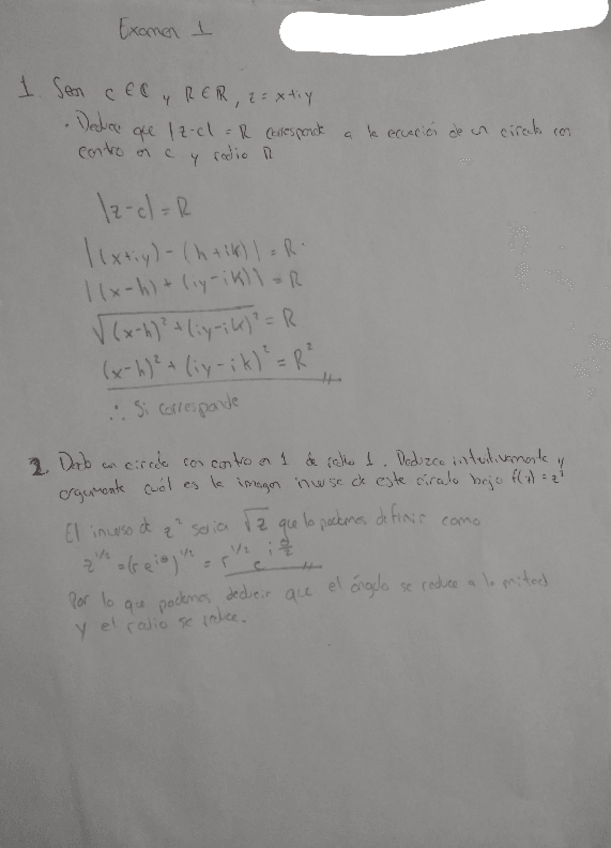 Examen 1
1. Sean c ∈ ℂ y R ∈ ℝ, z = x+iy
· Deduce que |z-c| = R corresponde a la ecuación de un círculo con
centro en c y radio R
|z-c| = R
|(x+iy) - (h+ik)| = R
|(x-h) + (iy-ik)| = R
√(x-h)² + (iy-ik)² = R
(x-h)² + (iy-ik)² = R²
∴ Si corresponde
2. Dado un círculo con centro en 1 de radio 1. Deduzca intuitivamente y
argumente cuál es la imagen inversa de este círculo bajo f(z) = z²
El inverso de z² seria √z que lo podemos definir como
z^1/2 = (r e^iθ)^1/2 = r^1/2 e^i θ/2
Por lo que podemos deducir que el ángulo se reduce a la mitad
y el radio se